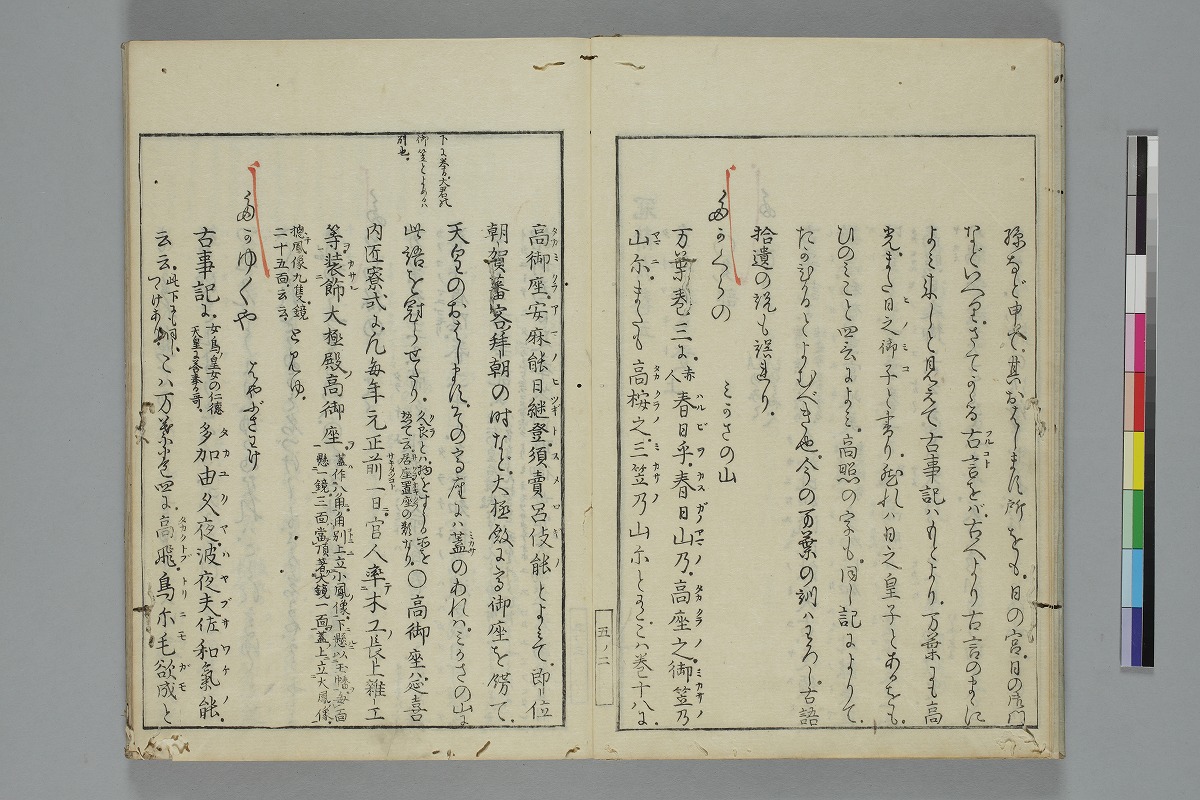 孫など申て其おはします所をも日の宮日の御門
などいへりさてかゝる古言をば古へより古言のまゝに
よみ来しと見えて古事記ハもとより万葉にも高
光また日之御子と書り然れハ日之皇子とあるをも
ひのみこと四言によみ高照の字も同し記によりて
たかひかるとよむべき也今の万葉の訓ハわろし古語
拾遺の説も誤れり
たかくらの みかさの山
万葉巻三に赤人春日乎春日山乃高座之御笠乃
山尓またも高桉之三笠乃山尓とありこハ巻十八に
五ノ二
高御座安麻能日継登須賣呂伎能とよみて即位
朝賀蕃客拝朝の時など大極殿に高御座を餝て
天皇のおはしますその高座にハ蓋のあれハみかさの山に
此語を冠らせたり
○高御座ハ延喜
内匠寮式に凡毎年元正前一日官人率木工長上雑工
等装飾大極殿高御座
蓋作八角角別上立小鳳像下懸以玉幡毎面
懸鏡三面當頂著大鏡一面蓋上立大鳳像
惣鳳像九隻鏡
二十五面云云
とみゆ
たかゆくや はやぶさわけ
古事記に
女鳥皇女の仁徳
天皇に答奉る哥
多加由久夜波夜夫佐和氣能
云云
此下にも
つけあり
こハ万葉巻四に高飛鳥尓毛欲成と
下に挙る大君乃
御笠とよめるハ
別也